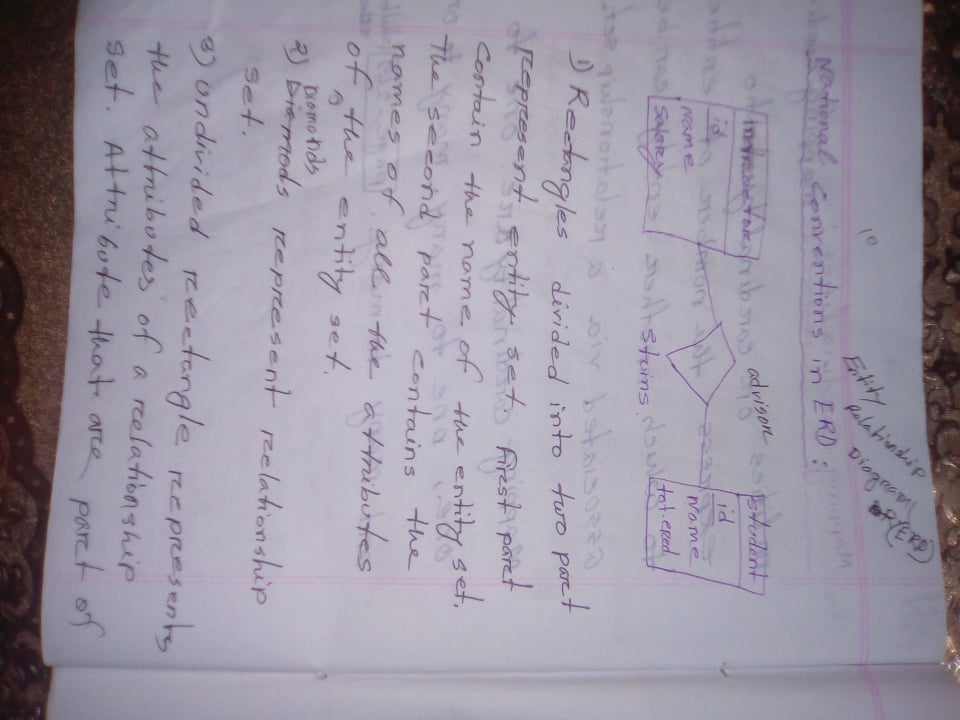 10
Entity
Relationship
Diagram
(ERD)
National Conventions in ERD :
advisor
instructor
id
name
salary
student
id
name
tot.cred
1) Rectangles divided into two part
represent entity set. First part
contain the name of the entity set.
The second part contains the
names of all the attributes
of the entity set.
Diamonds
2) Diamods represent relationship
set.
3) Undivided rectangle represents
the attributes of a relationship
set. Attribute that are part of